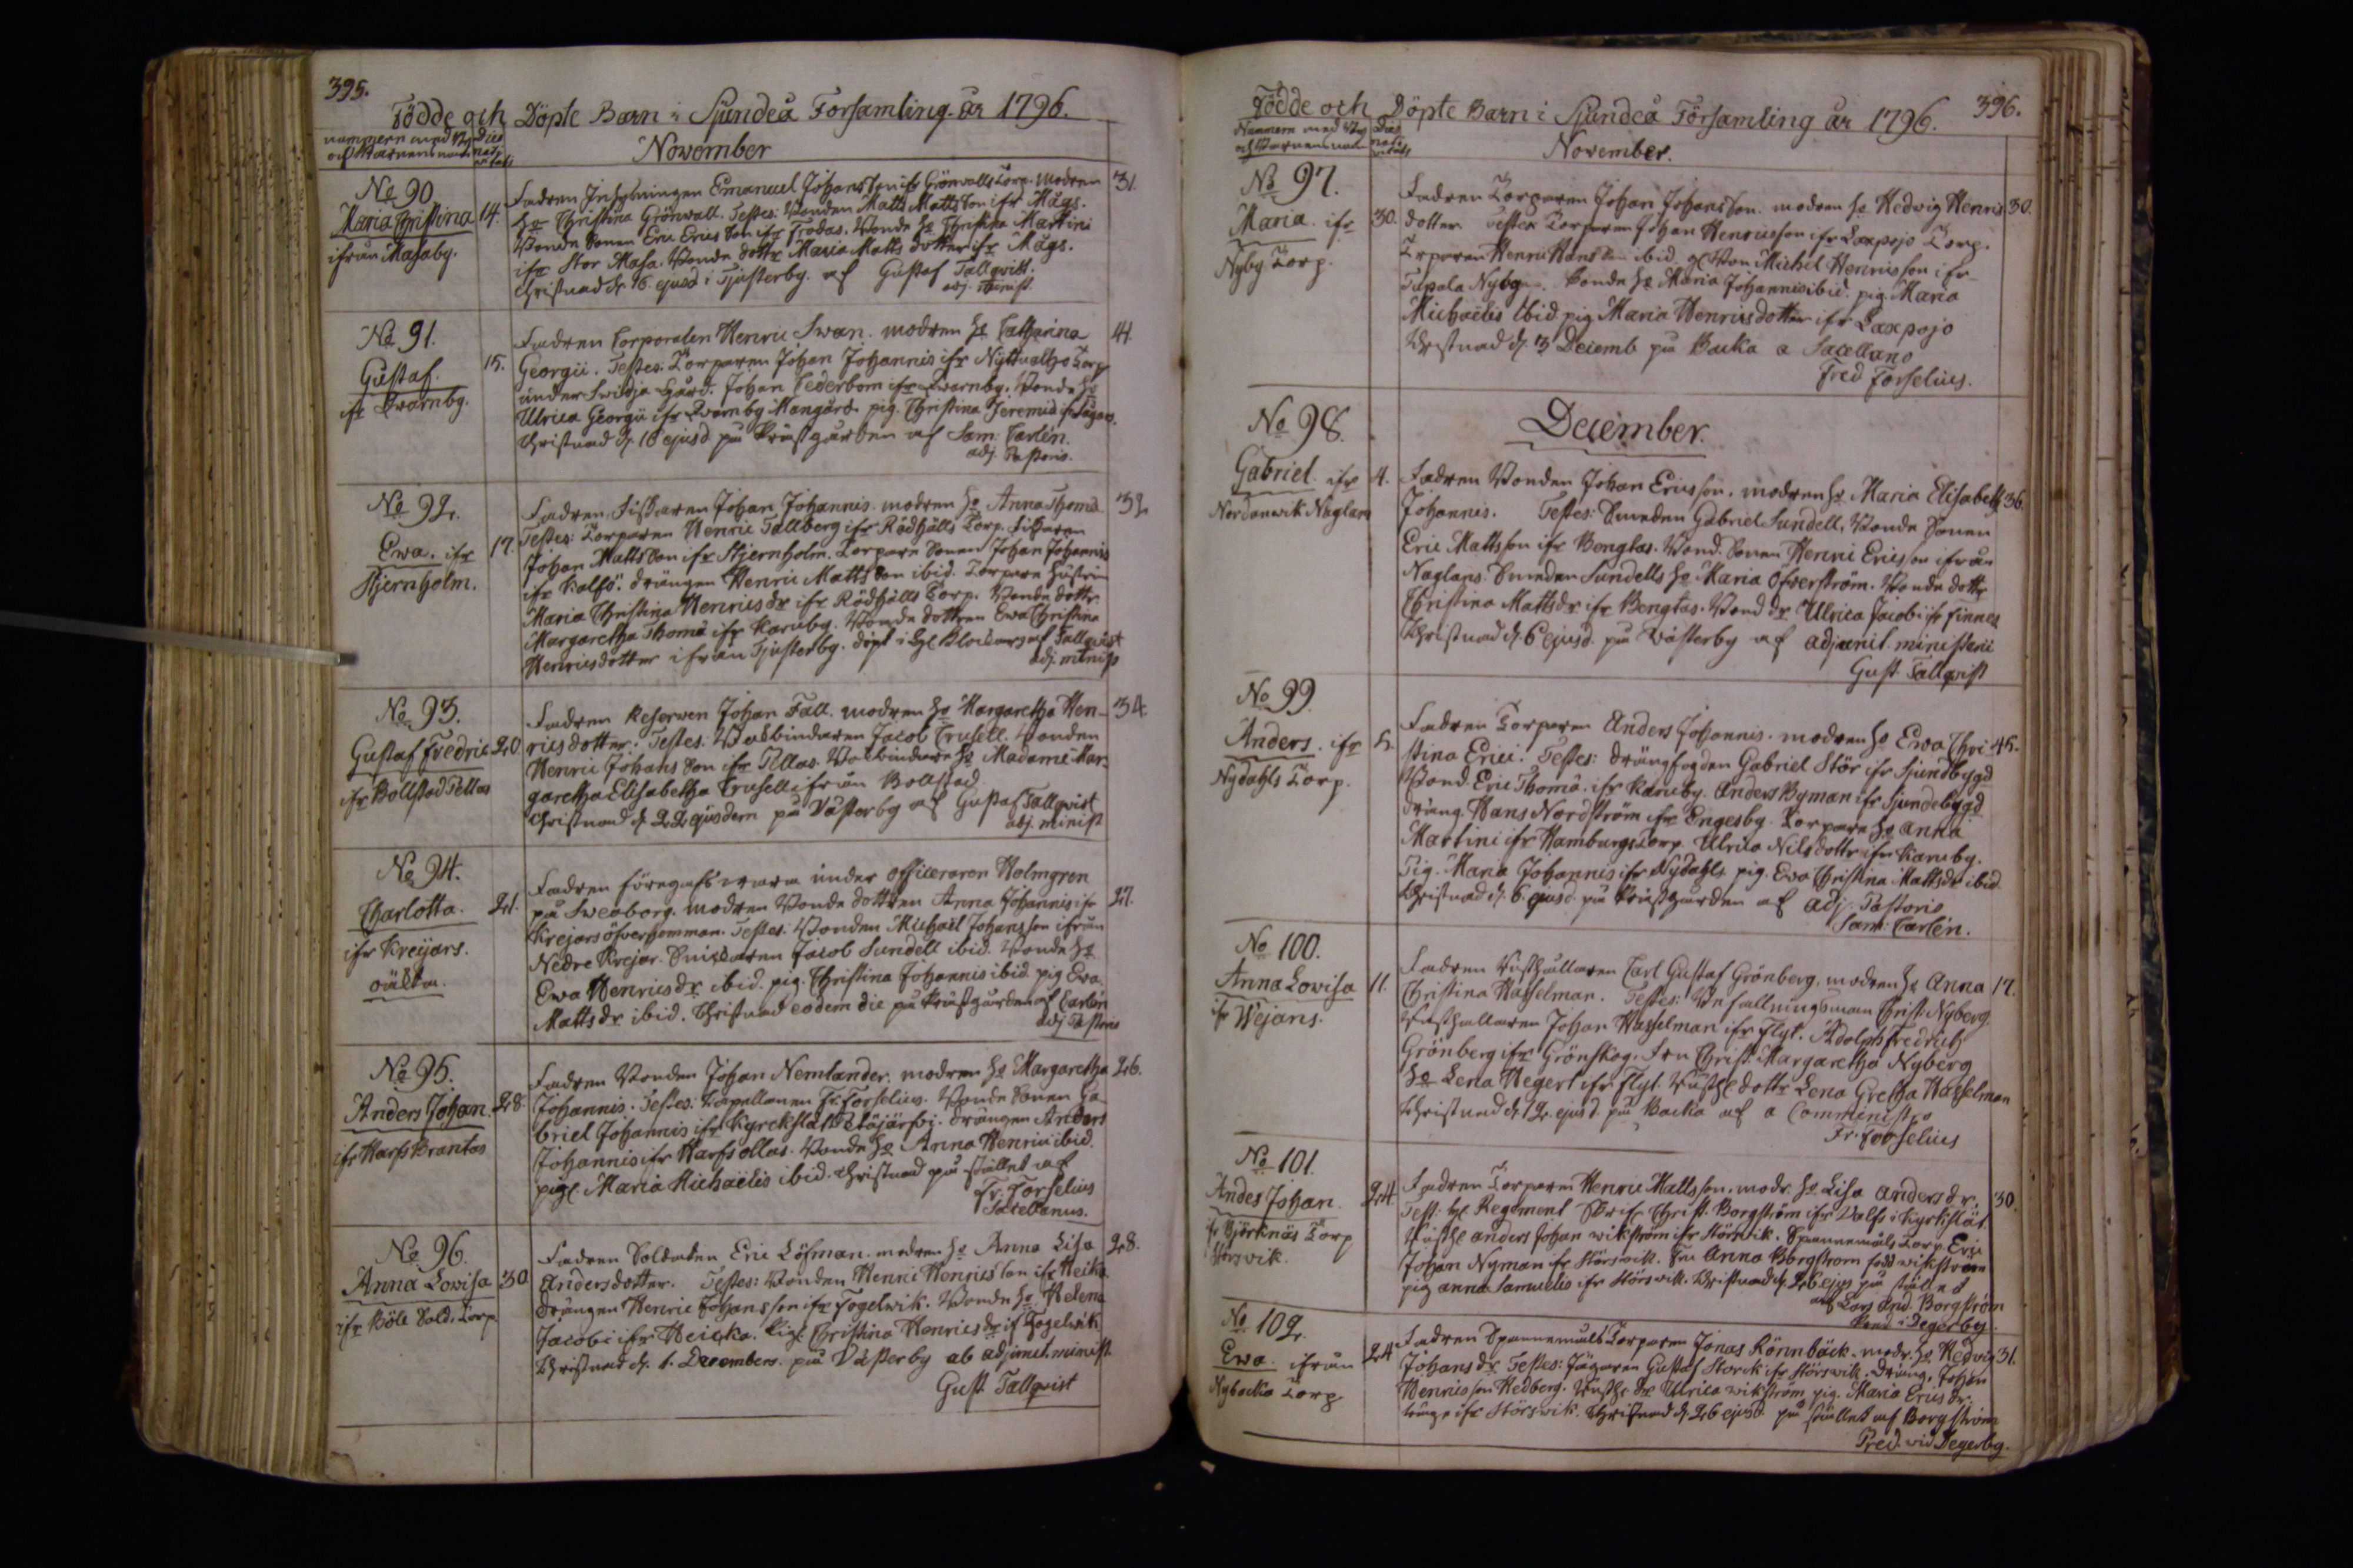 395.
Födde och Döpte Barn i Sjundeå Forsamling år 1796.
nummern med N
och Barnens namn
Dies
nati
vitatis
November
No 90
Maria Christina
ifrån Masaby.
14.
Fadren Inhysningen Emanuel Johansson ifr Grönvalls Torp. modren
31.
Ho Christina Grönvall. Testes: Bonden Matts Mattsson ifr Mågs.
Bonde Sonen Eric Ericsson ifr Frodas. Bonde Ho Christina Martini
ifr Stor Masa. Bonde dottr Maria Matts dotter ifr Mågs.
Christnad d. 16 ejusd i Tjusterby af Gustaf Tallqvist.
adj. minist.
No 91.
Gustaf.
ifr Qvarnby.
15.
Fadren Corporalen Henric Swan. modren Ho Catharina
44
Georgii. Testes: Torparen Johan Johannis ifr Torp
under Svidja Gård. Johan Cederbom ifr Qvarnby. Bonde Ho
Ulrica Georgii ifr Qvarnby Mangård. pig. Christina Jeremiæ
Christnad d. 16 ejusd på Prästgården af Sam: Carlén.
adj. Pastoris.
No 92.
Ewa. ifr
Stjernholm.
17.
Fadren Fiskaren Johan Johannis. modren Ho Anna Thomæ
32
Testes: Torparen Henric Tallberg ifr Rödhälls Torp. Fiskaren
Johan Mattsson ifr Stjernholm. Torpare Sonen Johan Johannis
ifr Kalfö. drängen Henric Mattsson ibid. Torpare hustrun
Maria Christina Henricsdr ifr Rödhälls Torp. Bonde dottr
Margaretha Thomæ ifr Karuby. Bonde dottren Ewa Christina
Henricsdotter ifrån Tjusterby. döpt i af Tallqvist
adj. minist
No 93.
Gustaf Fredric
ifr Bollstad Tellas
20
Fadren Reserven Johan Fall. modren Ho Margaretha Hen-
34.
ricsdotter. Testes: Bokbindaren Jacob Truselt. Bonden
Henric Johansson ifr Tellas. Bokbindare Ho Madame Mar-
garetha Elisabetha Truselt ifrån Bollstad
Christnad d. 22 ejusdem på Västerby af Gustaf Tallqvist
adj. minist
No 94.
Charlotta.
ifr Kreijars.
oäkta.
21.
Fadren föregafs wara under officeraren Holmgren
på Sweaborg. modren Bonde dottren Anna Johannis ifr
27.
Krejars öfverhemman. Testes: Bonden Michael Johansson ifrån
Nedre Krejar. Snickaren Jacob Sundell ibid. Bonde Ho
Ewa Henricsdr ibid. pig. Christina Johannis ibid. pig Ewa
Mattsdr ibid. Christnad eodem die på Prästgården af Carlén
adj Pastoris
No 95.
Anders Johan.
ifr Harfs Brantas
28.
Fadren Bonden Johan Nemlander. modren Ho Margaretha
26.
Johannis. Testes: Capellanen Fr. Forselius. Bonde Sonen Ga-
briel Johannis ifr Kyrkslätt Petäjärfvi. drängen Anders
Johannis ifr Harfs ollas. Bonde Ho Anna Henrici ibid.
pig. Maria Michaëlis ibid. Christnad på stället af
Fr. Forselius
Sacellanus.
No 96.
Anna Lovisa
ifr Böle Sold. Torp
30.
Fadren Soldaten Eric Löfman. modren Ho Anna Lisa
28.
Andersdotter. Testes: Bonden Henric Henricsson ifr Heick.
drängen Henric Johansson ifr Fogelwik. Bonde Ho Helena
Jacobi ifr Heicka. Pig. Christina Henricsdr if Fogelwik
Christnad d. 1. December. på Västerby ab adjunct. minist.
Gust. Tallqvist
396.
Födde och Döpte Barn i Sjundeå Församling år 1796.
Nummern med N
och Barnens namn
Dies
nati
vitatis
November.
No 97.
Maria. ifr
Nyby Torp.
30.
Fadren Torparen Johan Johansson. modren Ho Hedvig Henrics
30.
dotter Testes Torparen Johan Henricsson ifr Laxpojo Torp.
Torparen Henric Hansson ibid. gl. Bon Michel Henricsson ifr
Tupala Nyby. Bonde Ho Maria Johannis ibid. pig. Maria
Michaëlis ibid pig Maria Henricsdotter ifr Laxpojo
Christnad d. 3 Decemb på Backa a Sacellano
Fred Forselius.
December.
No 98.
Gabriel. ifr
Nordanwik Naglars
4.
Fadren Bonden Johan Ericsson. modren Ho Maria Elisabeth
36.
Johannis. Testes: Smeden Gabriel Sundell, Bonde Sonen
Eric Mattsson ifr Bengtas. Bond. Sonen Henric Ericsson ifrån
Naglars. Smeden Sundells Ho Maria Öfverström. Bonde dottr
Christina Mattsdr ifr Bengtas. Bond dr Ulrica Jacobi ifr Finnes
Christnad d. 6 ejusd. på Västerby af adjunct. ministerii
Gust. Tallqvist
No 99.
Anders. ifr
Nydahls Torp.
5.
Fadren Torparen Anders Johannis. modren Ho Ewa Chri
45.
stina Erici. Testes: drängfogden Gabriel Stör ifr Sjundbygd
Bond. Eric Thomæ. ifr Karuby. Anders Byman ifr Sjundebygd
dräng. Hans Nordström ifr Engesby. Torpare Ho Anna
Martini ifr Hamburgs Torp. Ulrica Nilsdottr ifr Karuby.
Pig. Maria Johannis ifr Nydahls pig. Ewa Christina Mattsdr ibid
Christnad d. 6. ejusd. på Prästgården af adj. Pastoris
Sam: Carlén.
No 100.
Anna Lowisa
ifr Wejans.
11.
Fadren Rusthållaren Carl Gustaf Grönberg. modren Ho Anna
17.
Christina Hasselman. Testes: Befallningsman Christ. Nyberg.
Rusthållaren Johan Hasselman ifr Flyt. Adolph Fredrich
Grönberg ifr Grönskog. Fru Christ. Margaretha Nyberg
Ho Lena Hegert ifr Flyt. Rusth. dottr Lena Gretha Hasselman
Christnad d. 12. ejusd. på Backa af a Comministro
Fr. Forselius
No 101.
Andes Johan.
ifr Björknäs Torp
Störsvik.
24.
Fadren Torparen Henric Mattsson. modr. Ho Lisa Andersdr.
30.
Test: Regiment Skrif. Christ. Borgström ifr Volfs i Kyrkslät
Rusth. Anders Johan wikström ifr Störsvik. Spannemåls Torp. Eric
Johan Nyman ifr Störsvik. Fru Anna Borgström född wikström
pig Anna Samuelis ifr Störsvik. Christnad d. 26 ejus på stället
af Lars And. Borgström
Pred. i Degerby.
No 102.
Ewa. ifrån
Nybacka Torp
24
Fadren Spannemåls Torparen Jonas Rönnbäck. modr. Ho Hedvig
31.
Johansdr. Testes: Jägaren Gustaf Storck ifr Störsvik. dräng. Johan
Henricsson Hedberg. Rusth. dr Ulrica wikström pig. Maria Ericsdr.
ifr Störsvik. Christnad d. 26 ejusd. på stället af Borgström
Pred. vid Degerby.